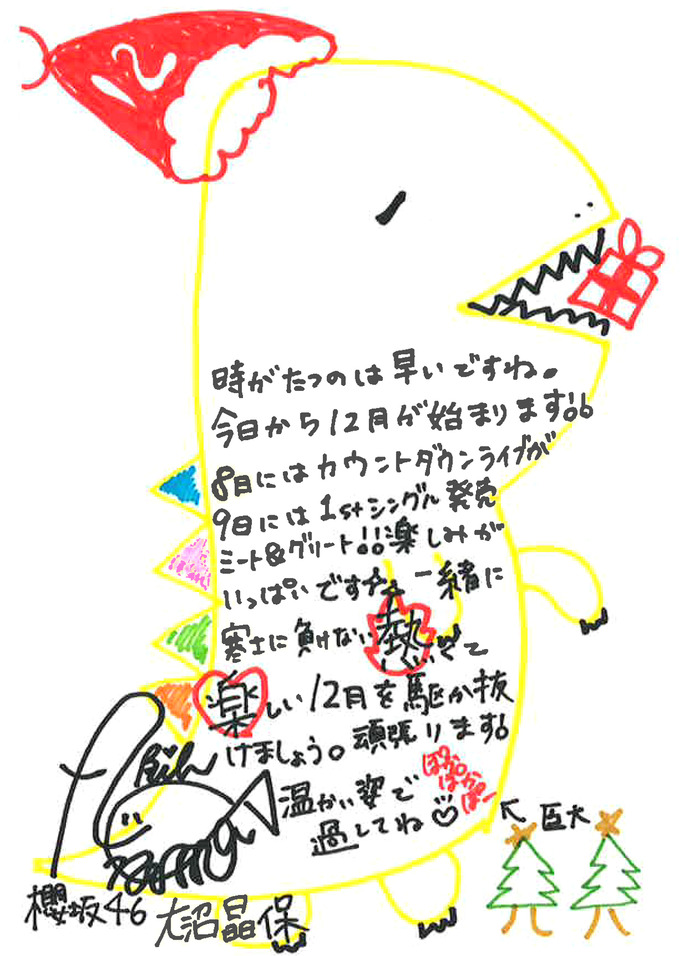 時がたつのは早いですね。
今日から12月が始まります!!
8日にはカウントダウンライブが
9日には1stシングル発売
ミート&グリート!!楽しみが
いっぱいです 一緒に
寒士に負けない熱くて
楽しい12月を駆か抜
けましょう。頑張ります!
温かい姿で
過してね♡
ぽかぽかぽー
↖巨大
櫻坂46 大沼晶保